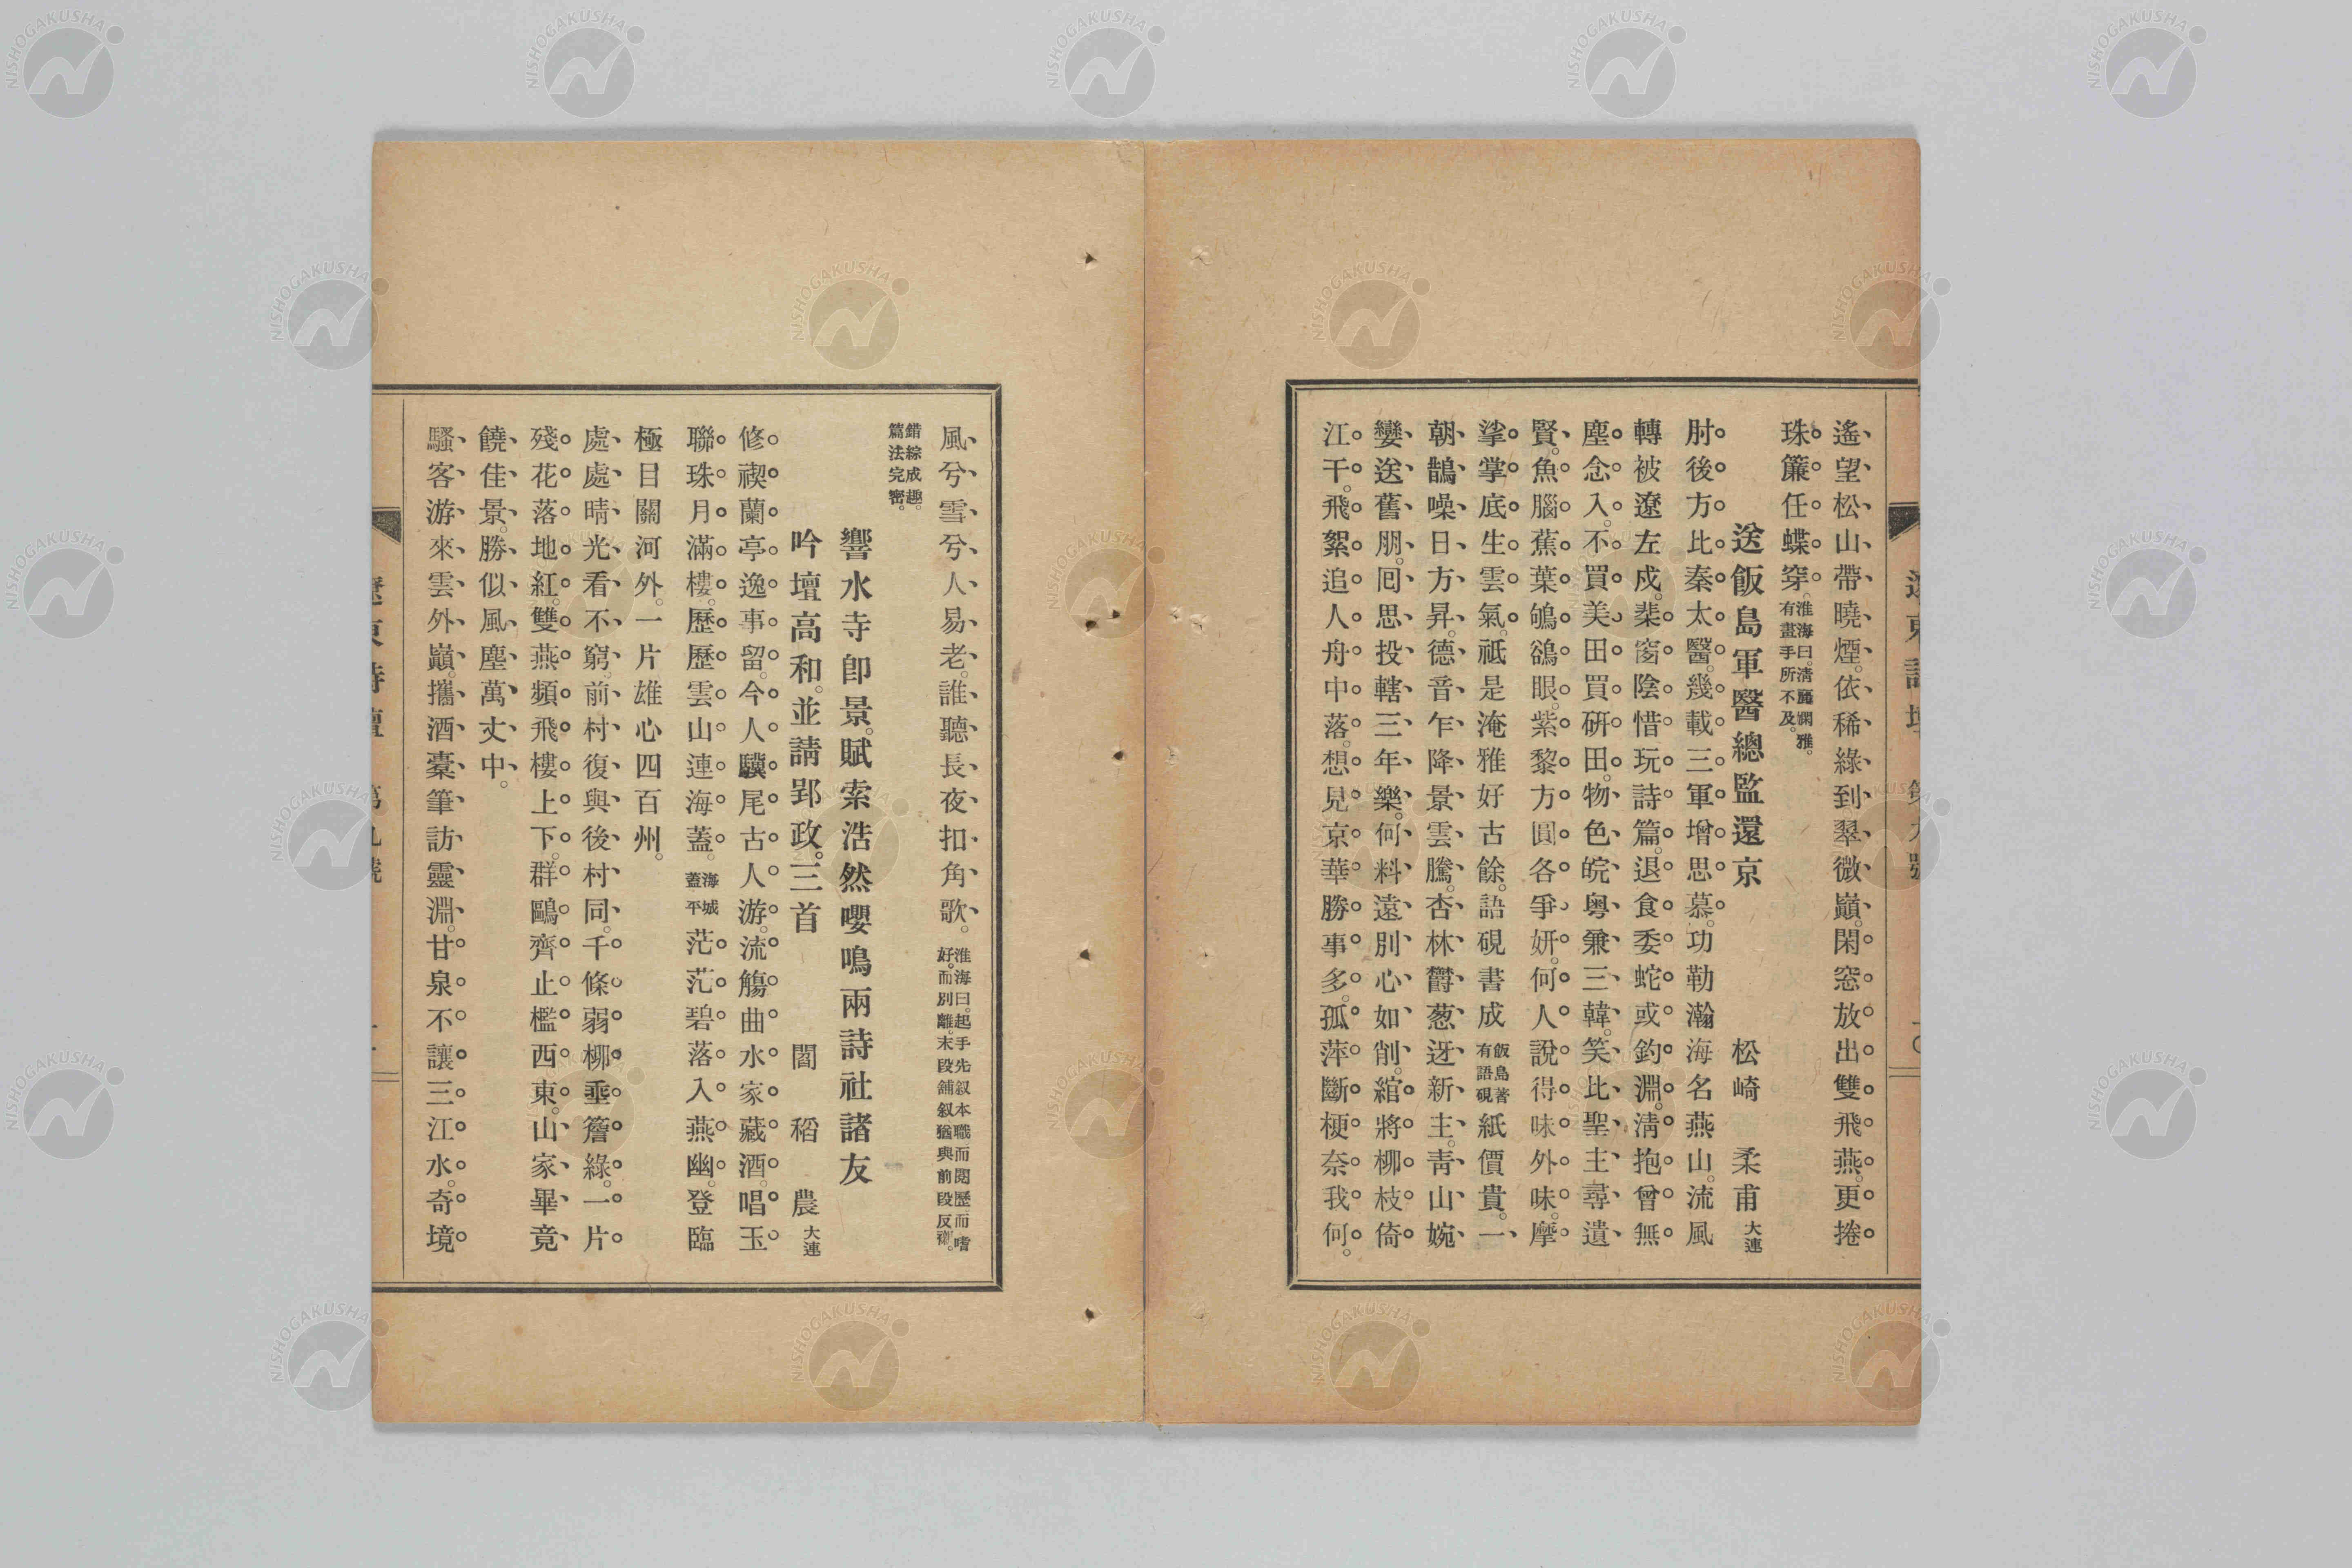 遙望松山帶曉煙。依稀綠到翠微巓。閑窓放出雙飛燕。更捲
珠簾任蝶穿。淮海曰。淸麗嫻雅。有畫手所不及。
送飯島軍醫總監還京　松崎柔甫 大連
肘後方比秦太醫。幾載三軍增思慕。功勒瀚海名燕山。流風
轉被遼左戍。棐窗陰惜玩詩篇。退食委蛇或釣淵。淸抱曾無
塵念入。不買美田買硏田。物色皖粤兼三韓。笑比聖主尋遺
賢。魚腦蕉葉鴝鵒眼。紫黎方圓各爭妍。何人說得味外味。摩
挲掌底生雲氣。祇是淹雅好古餘。語硯書成 飯島著有語硯 紙價貴。一
朝鵲噪日方昇。德音乍降景雲騰。杏林欝葱迓新主。靑山婉
孌送舊朋。囘思投轄三年樂。何料遠別心如削。綰將柳枝倚
江干。飛絮追人舟中落。想見京華勝事多。孤萍斷梗奈我何。
風兮雪兮人易老。誰聽長夜扣角歌。淮海曰。起手先叙本職而閱歷而嗜好。而別離。末段舖叙猶與前段反襯。
錯綜成趣。篇法完密。
響水寺卽景。賦索浩然嚶鳴兩詩社諸友
吟壇高和。並請郢政。三首　閻稻農 大連
修禊蘭亭逸事留。今人驥尾古人游。流觴曲水家藏酒。唱玉
聯珠月滿樓。歷歷雲山連海蓋。海城蓋平 茫茫碧落入燕幽。登臨
極目關河外。一片雄心四百州。
處處晴光看不窮。前村復與後村同。千條弱柳垂簷綠。一片
殘花落地紅。雙燕頻飛樓上下。群鷗齊止檻西東。山家畢竟
饒佳景。勝似風塵萬丈中。
騷客游來雲外巓。攜酒橐筆訪靈淵。甘泉不讓三江水。奇境